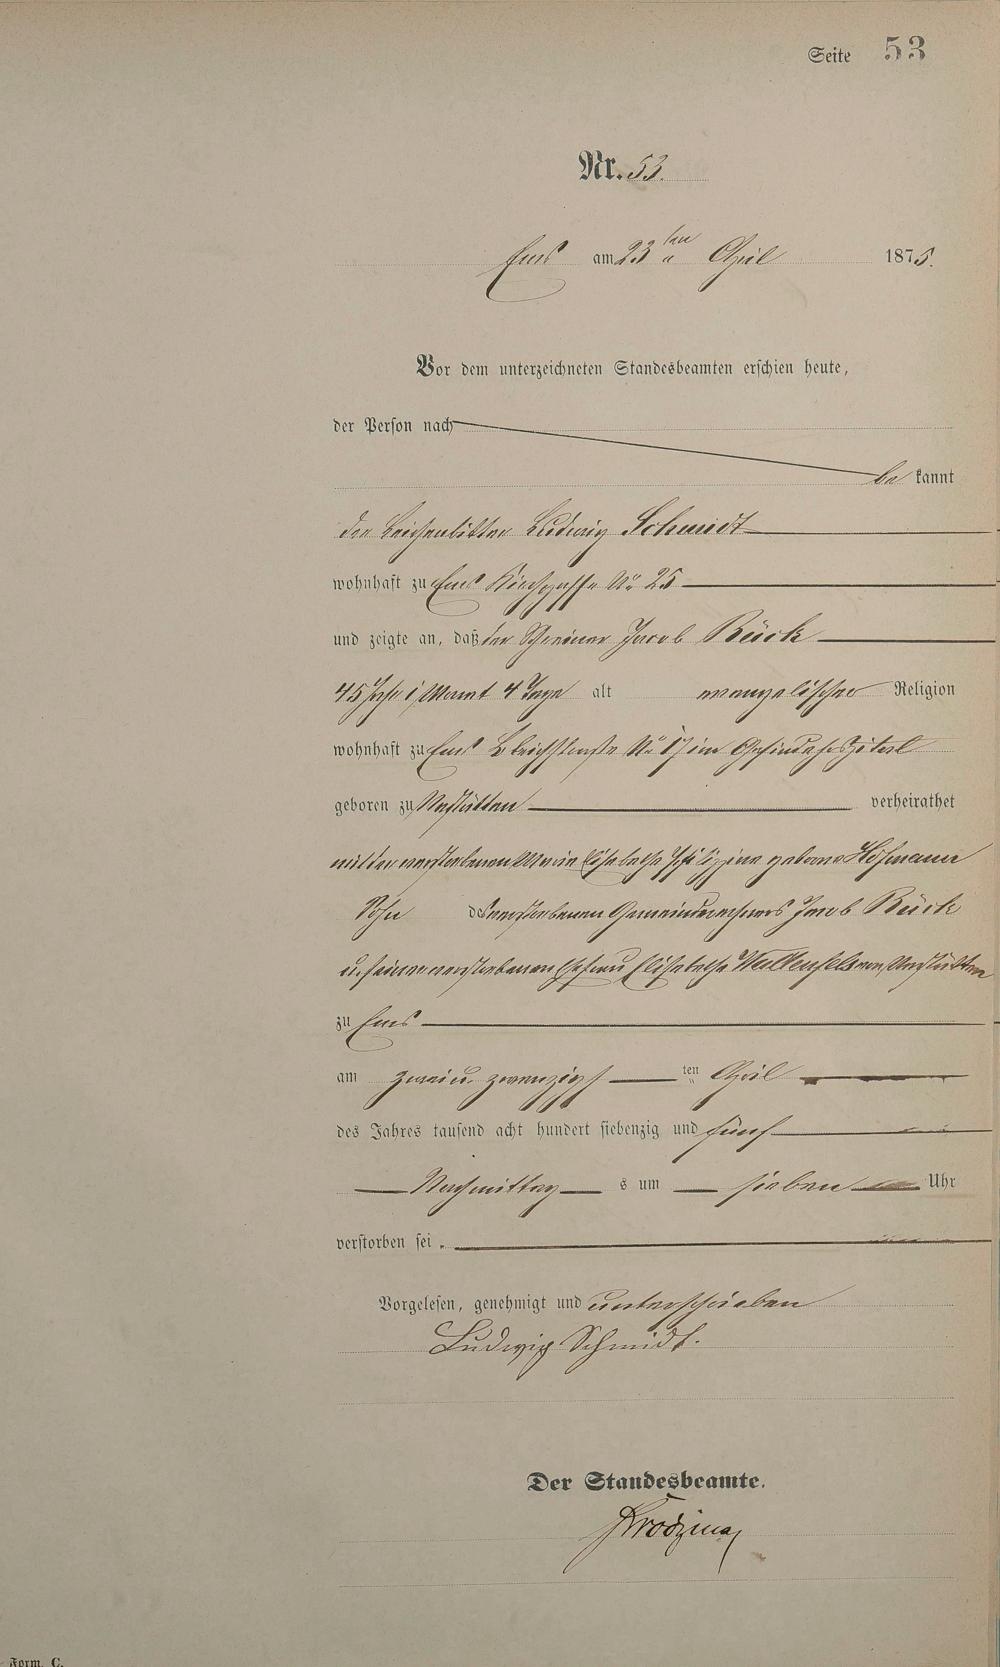 Seite 53
Nr. 53.
Ems am 23ten April 1875.
Vor dem unterzeichneten Standesbeamten erschien heute,
der Person nach
be kannt
der Leichenbitter Ludwig Schmidt
wohnhaft zu Ems Kirchgasse No 25
und zeigte an, daß der Schreiner Jacob Bück
45 Jahr 1 Monat 4 Tage alt evangelischer Religion
wohnhaft zu Ems Bleichstraße No 17 im
geboren zu Nastätten verheirathet
mit der verstorbenen Marie Elisabethe Philippine geborne Hofmann
Sohn des verstorbenen Gemeinderechners Jacob Bück
u. seiner verstorbenen Ehefrau Elisabethe Wallenfels von Nastätten
zu Ems
am zwei u. zwanzigsten April
des Jahres tausend acht hundert siebenzig und fünf
Nachmittags um sieben Uhr
verstorben sei.
Vorgelesen, genehmigt und unterschrieben
Ludwig Schmidt.
Der Standesbeamte.
Form. C.